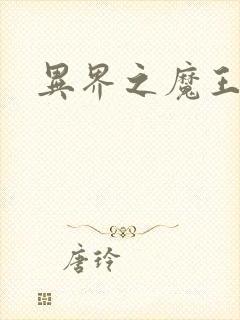 異界之魔王
唐玲